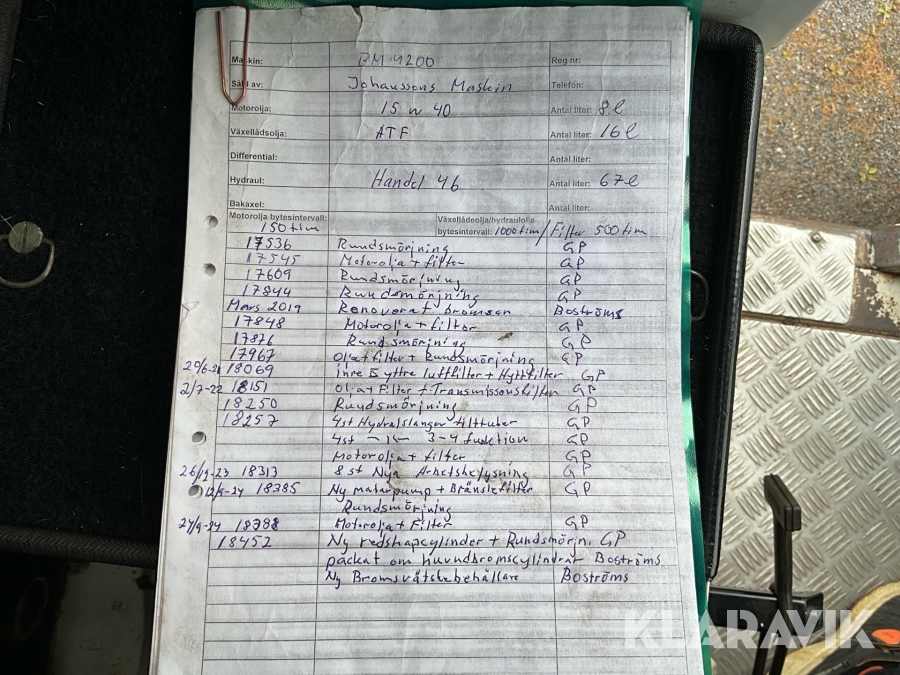 Maskin: BM 4200 Reg nr:
Såld av: Johanssons Maskin Telefon:
Motorolja: 15 w 40 Antal liter: 8 l
Växellådsolja: ATF Antal liter: 16 l
Differential: Antal liter:
Hydraul: Handel 46 Antal liter: 67 l
Bakaxel: Antal liter:
Motorolja bytesintervall: 150 tim Växellådeolja/hydraulolja bytesintervall: 1000 tim / Filter 500 tim
17536 Rundsmörjning GP
17545 Motorolja + filter GP
17609 Rundsmörjning GP
17844 Rundsmörjning GP
Mars 2019 Renoverat bromsen Boströms
17848 Motorolja + filter GP
17876 Rundsmörjning GP
17967 Olja + filter + Rundsmörjning GP
18069 inre & yttre luftfilter + Hyttfilter GP
2/7-22 18151 Olja + Filter + Transmissionsfilter GP
18250 Rundsmörjning GP
18257 4st Hydralslangar tilttuber GP
4st -"- 3-4 funktion GP
Motorolja + filter GP
18313 8 st Nya Arbetsbelysning GP
18385 Ny matarpump + Bränslefilter GP
Rundsmörjning
24/9-24 Motorolja + Filter GP
18452 Ny redskapcylinder + Rundsmörjn. GP
packat om huvudbromscylindrar Boströms
Ny Bromsvätskebehållare Boströms
KLARAVIK